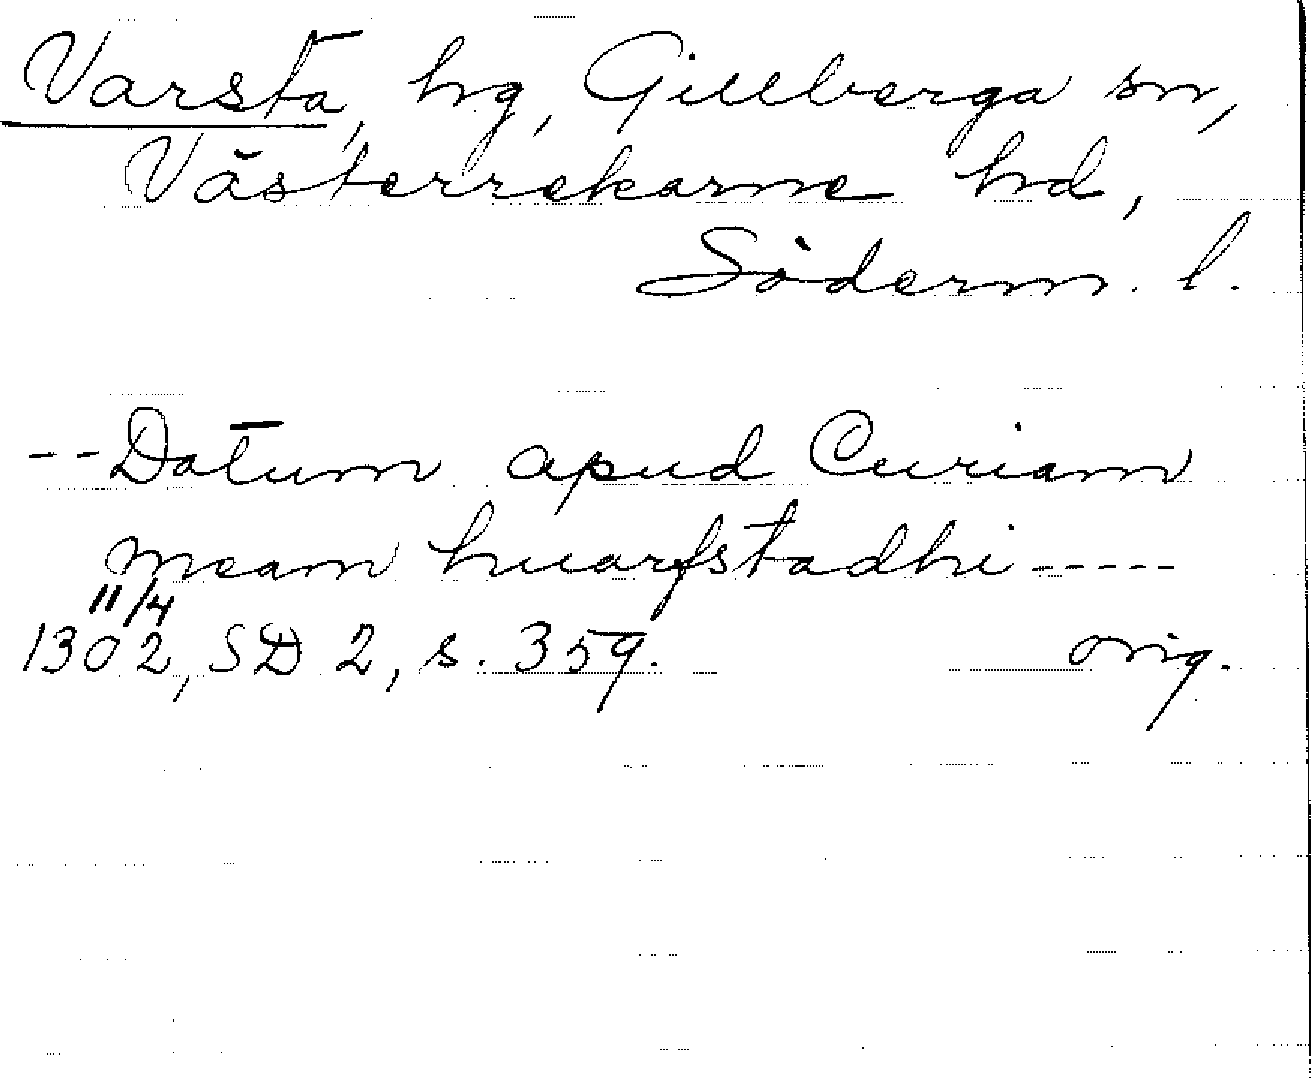 Varsta, hg, Gillberga sn,
Västerrekarne hd,
Söderm. l.
--Datum apud Curiam
meam huarfstadhi-----
11/4
1302, SD 2, s. 359. orig.